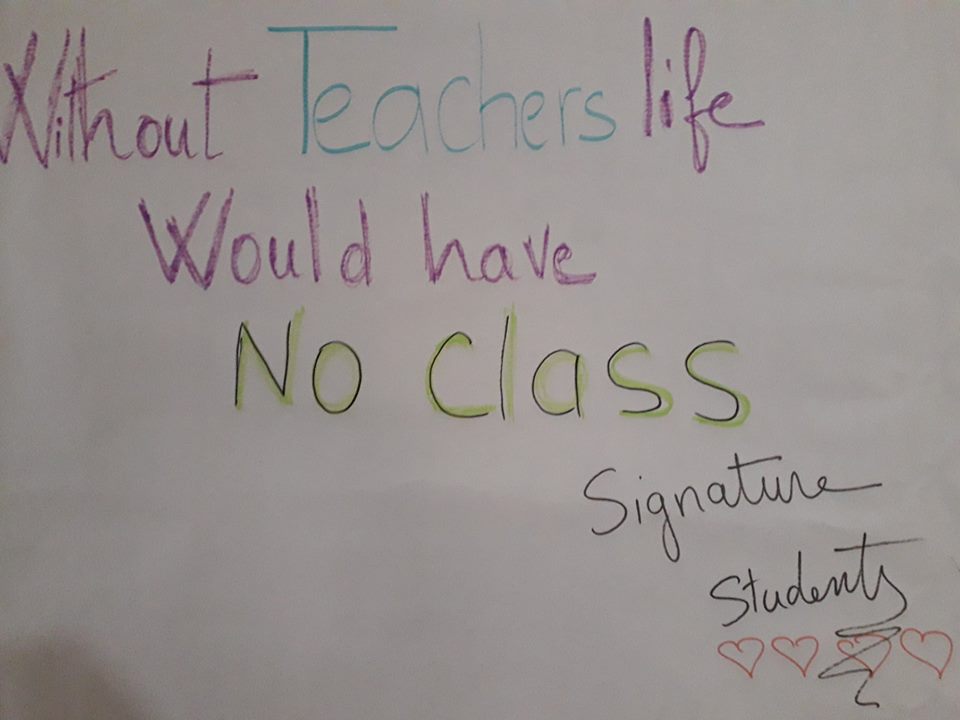 Without Teachers life
Would have
No Class
Signature
Students